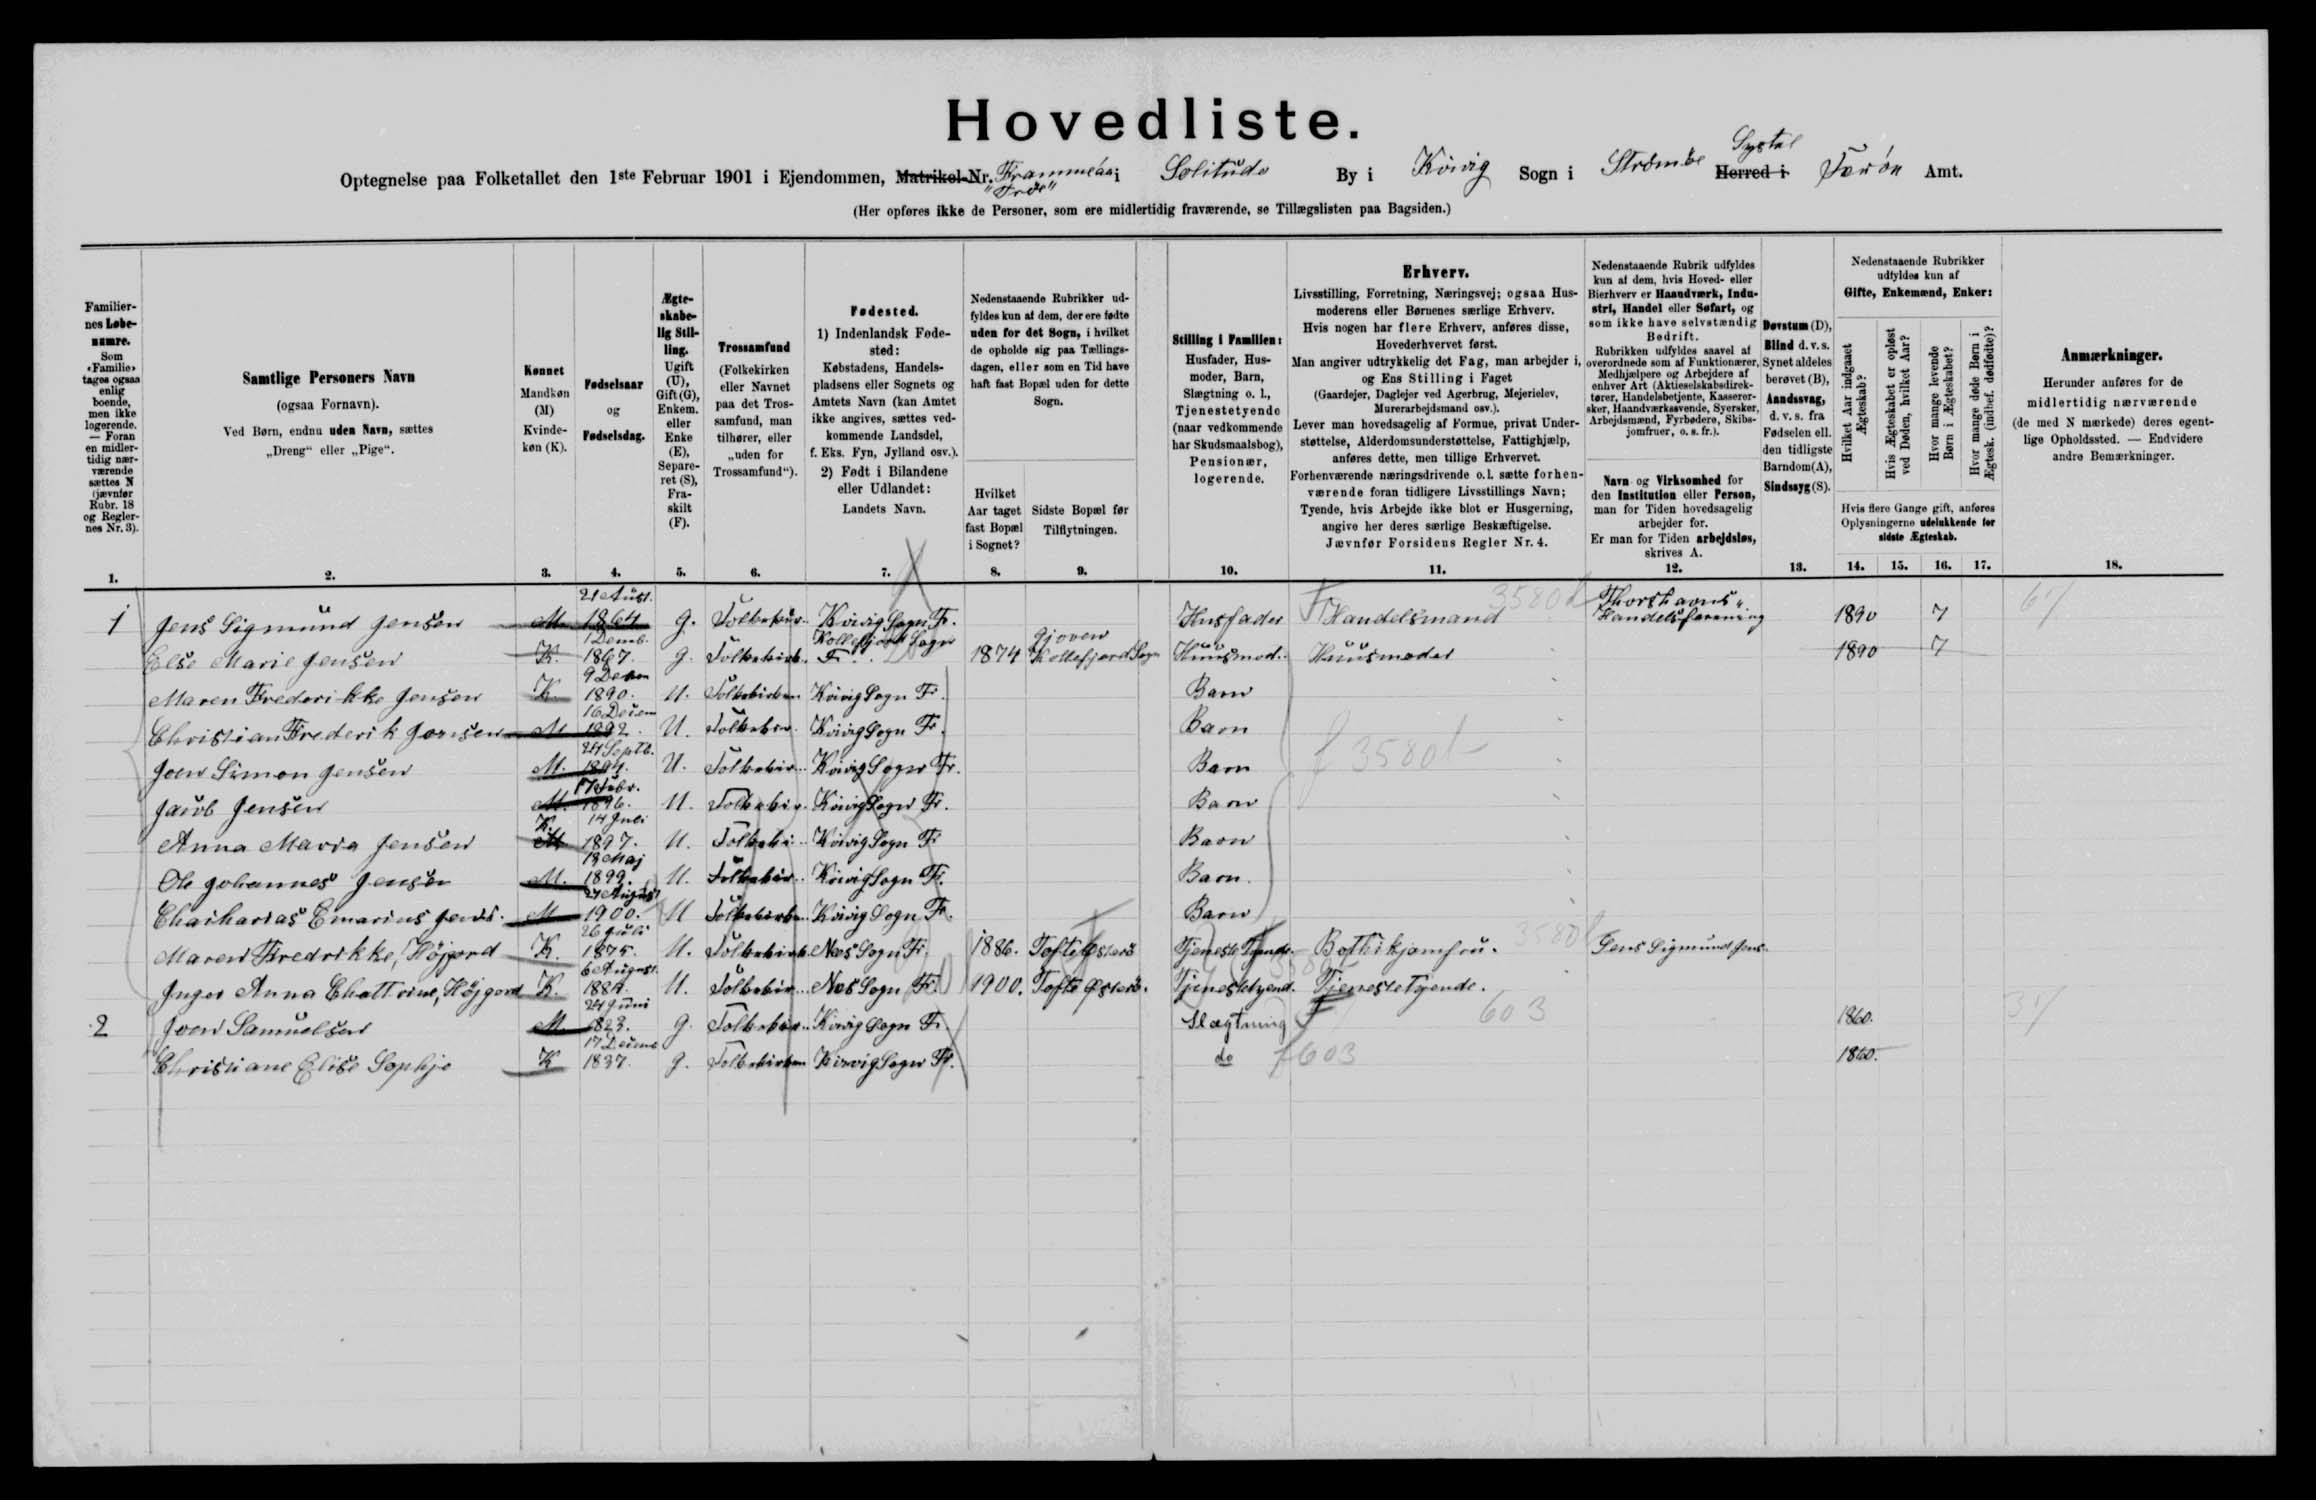 Hovedliste.
Optegnelse paa Folketallet den 1ste Februar 1901 i Ejendommen, Matrikel-Nr. i Solitude By i Kvivig Sogn i Strömöe Syssel Herred i Færön Amt.
(Her opføres ikke de Personer, som ere midlertidig fraværende, se Tillægslisten paa Bagsiden.)
Familiernes Løbenumre. Som «Familie» tages ogsaa enlig boende, men ikke logerende. — Foran en midlertidig nærværende sættes N (jævnfør Rubr. 18 og Reglernes Nr. 3).
Samtlige Personers Navn (ogsaa Fornavn). Ved Børn, endnu uden Navn, sættes „Dreng“ eller „Pige“.
Kønnet Mandkøn (M) Kvindekøn (K).
Fødselsaar og Fødselsdag.
Ægteskabelig Stilling. Ugift (U), Gift (G), Enkem. eller Enke (E), Separeret (S), Fraskilt (F).
Trossamfund (Folkekirken eller Navnet paa det Trossamfund, man tilhører, eller „uden for Trossamfund“).
Fødested. 1) Indenlandsk Fødested: Købstadens, Handelspladsens eller Sognets og Amtets Navn (kan Amtet ikke angives, sættes vedkommende Landsdel, f. Eks. Fyn, Jylland osv.). 2) Født i Bilandene eller Udlandet: Landets Navn.
Nedenstaaende Rubrikker udfyldes kun af dem, der ere fødte uden for det Sogn, i hvilket de opholde sig paa Tællingsdagen, eller som en Tid have haft fast Bopæl uden for dette Sogn.
Hvilket Aar taget fast Bopæl i Sognet?
Sidste Bopæl før Tilflytningen.
Stilling i Familien: Husfader, Husmoder, Barn, Slægtning o. l., Tjenestetyende (naar vedkommende har Skudsmaalsbog), Pensionær, logerende.
Erhverv.
Livsstilling, Forretning, Næringsvej; ogsaa Husmoderens eller Børnenes særlige Erhverv.
Hvis nogen har flere Erhverv, anføres disse, Hovederhvervet først.
Man angiver udtrykkelig det Fag, man arbejder i, og Ens Stilling i Faget
(Gaardejer, Daglejer ved Agerbrug, Mejerielev, Murerarbejdsmand osv.).
Lever man hovedsagelig af Formue, privat Understøttelse, Alderdomsunderstøttelse, Fattighjælp, anføres dette, men tillige Erhvervet.
Forhenværende næringsdrivende o.l. sætte forhenværende foran tidligere Livsstillings Navn;
Tyende, hvis Arbejde ikke blot er Husgerning, angive her deres særlige Beskæftigelse.
Jævnfør Forsidens Regler Nr. 4.
Nedenstaaende Rubrik udfyldes kun af dem, hvis Hoved- eller Bierhverv er Haandværk, Industri, Handel eller Søfart, og som ikke have selvstændig Bedrift.
Rubrikken udfyldes saavel af overordnede som af Funktionærer, Medhjælpere og Arbejdere af enhver Art (Aktieselskabsdirektører, Handelsbetjente, Kasserersker, Haandværkssvende, Syersker, Arbejdsmænd, Fyrbødere, Skibsjomfruer, o. s. fr.).
Navn og Virksomhed for den Institution eller Person, man for Tiden hovedsagelig arbejder for.
Er man for Tiden arbejdsløs, skrives A.
Døvstum (D), Blind d. v. s. Synet aldeles berøvet (B), Aandssvag, d. v. s. fra Fødselen ell. den tidligste Barndom (A), Sindssyg (S).
Nedenstaaende Rubrikker udfyldes kun af Gifte, Enkemænd, Enker:
Hvilket Aar indgaaet Ægteskab?
Hvis Ægteskabet er opløst ved Døden, hvilket Aar?
Hvor mange levende Børn i Ægteskabet?
Hvor mange døde Børn i Ægtesk. (indbef. dødfødte)?
Hvis flere Gange gift, anføres Oplysningerne udelukkende for sidste Ægteskab.
Anmærkninger. Herunder anføres for de midlertidig nærværende (de med N mærkede) deres egentlige Opholdssted. — Endvidere andre Bemærkninger.
1. 2. 3. 4. 5. 6. 7. 8. 9. 10. 11. 12. 13. 14. 15. 16. 17. 18.
1 Jens Sigmund Jensen M 21 Aust. 1864 G. Folkekir.. Kvivig Sogn Fr. Husfader Handelsmand Thorshavns Handelsforening 1890 7
Else Marie Jensen K. 1 Demb. 1867. G. Folkekirk. Kollefjord Sogn Fr. 1874 Kollefjord Sogn Huusmod. Huusmoder 1890 7
Maren Frederikke Jensen K 1890. U. Folkekirken Kvivig Sogn Fr. Barn
Christian Frederik Jensen M 16 Decem 1892. U. Folkekir. Kvivig Sogn Fr. Barn f 3580
Joen Simon Jensen M. 24 Septb. 1894. U. Folkekir.. Kvivig Sogn Fr. Barn
Jacob Jensen M. 17 Febr. 1896. U. Folkekir. Kvivig Sogn Fr. Barn
Anna Maria Jensen K. 14 Juli 1897. U. Folkeki.. Kvivig Sogn Fr Barn
Ole Johannes Jensen M. Maj 1899. U. Folkekir.. Kvivig Sogn Fr. Barn.
Emarius Jens. M August 1900. U Folkekirken. Kvivig Sogn Fr. Barn
Maren Fredrikke, Höjgord K. 26 Juli 1875. U. Folkekirk. Næs Sogn Fr. 1886. Tofte Østerö Tjeneste Tyende. 3580 Jens Sigmund Jens.
Inger Anna Chattrine, Höjgord K. 6 August. 1884. U. Folkekir.. Næs Sogn Fr. 1900. Tofte Østerö. Tjenestetyend. Tjenestetyende.
2 Joen Samuelsen M 24 Juni 1823. G. Folkekir.. Kvivig Sogn Fr. Slægtning 603 1860.
Christiane Elise Sophje K 1837. G. Folkekirken Kvivig Sogn Fr. do f 603 1860.